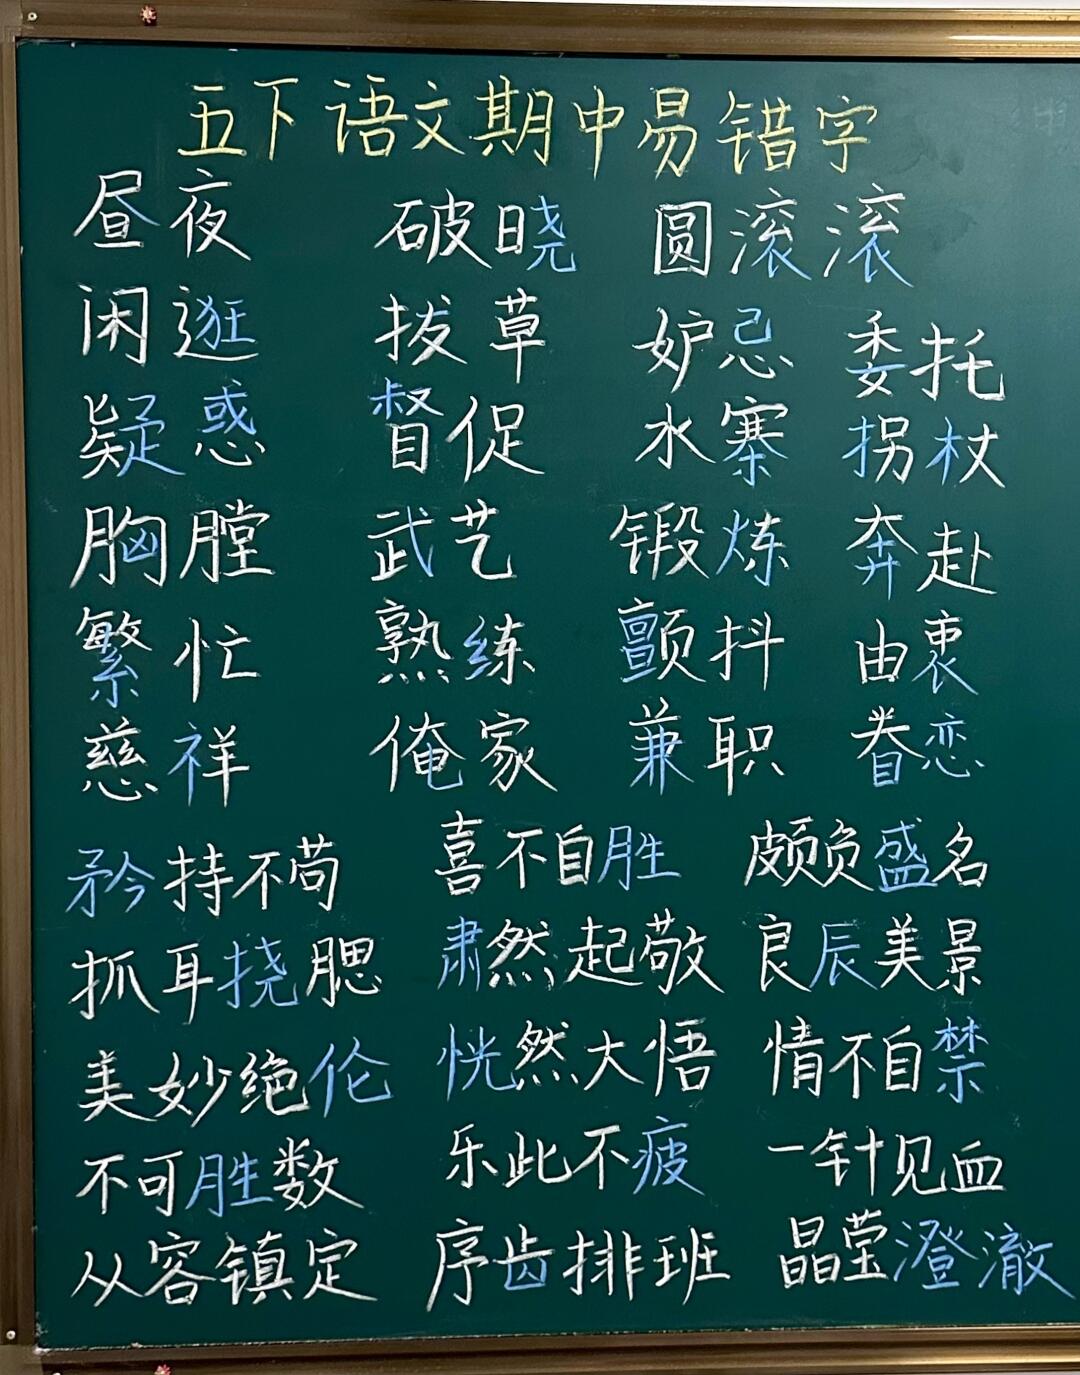 五下语文期中易错字
昼夜 破晓 圆滚滚
闲逛 拔草 妒忌 委托
疑惑 督促 水寨 拐杖
胸膛 武艺 锻炼 奔赴
繁忙 熟练 颤抖 由衷
慈祥 俺家 兼职 眷恋
矜持不苟 喜不自胜 颇负盛名
抓耳挠腮 肃然起敬 良辰美景
美妙绝伦 恍然大悟 情不自禁
不可胜数 乐此不疲 一针见血
从容镇定 序齿排班 晶莹澄澈